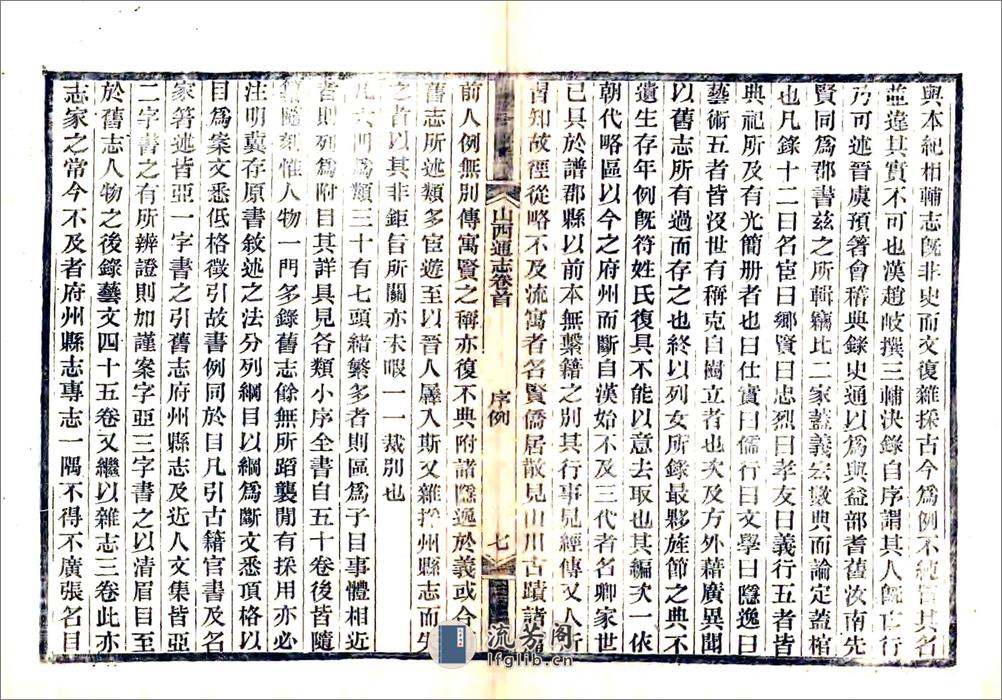 與本紀相輔志旣非史而文復雜採古今爲例不純冒其名
並違其實不可也漢趙岐撰三輔決錄自序謂其人旣亡行
乃可述晉虞預著會稽典錄史通以爲與益部耆舊汝南先
賢同爲郡書茲之所輯竊比二家蓋義宏數典而論定蓋棺
也凡錄十二曰名宦曰鄉賢曰忠烈曰孝友曰義行五者皆
典祀所及有光簡册者也曰仕實曰儒行曰文學曰隱逸曰
藝術五者皆沒世有稱克自樹立者也次及方外藉廣異聞
以舊志所有過而存之也終以列女所錄最夥旌節之典不
遺生存年例旣符姓氏復具不能以意去取也其編次一依
朝代略區以今之府州而斷自漢始不及三代者名卿家世
已具於譜郡縣以前本無繫籍之別其行事見經傳又人所
習知故徑從略不及流寓者名賢僑居散見山川古蹟諸
山西通志卷首
序例
七
前人例無別傳寓賢之稱亦復不典附諸隱逸於義或合
舊志所述類多宦遊至以晉人羼入斯又雜採州縣志而失
之者以其非鉅旨所關亦未暇一一裁別也
凡六門爲類三十有七頭緒繁多者則區爲子目事體相近
者則列爲附目其詳具見各類小序全書自五十卷後皆隨
隨刻惟人物一門多錄舊志餘無所蹈襲閒有採用亦必
注明冀存原書敘述之法分列綱目以綱爲斷文悉頂格以
目爲案文悉低格徵引故書例同於目凡引古籍官書及名
家著述皆亞一字書之引舊志府州縣志及近人文集皆亞
二字書之有所辨證則加謹案字亞三字書之以清眉目至
於舊志人物之後錄藝文四十五卷又繼以雜志三卷此亦
志家之常今不及者府州縣志專志一隅不得不廣張名目
流芳阁
lfglib.cn